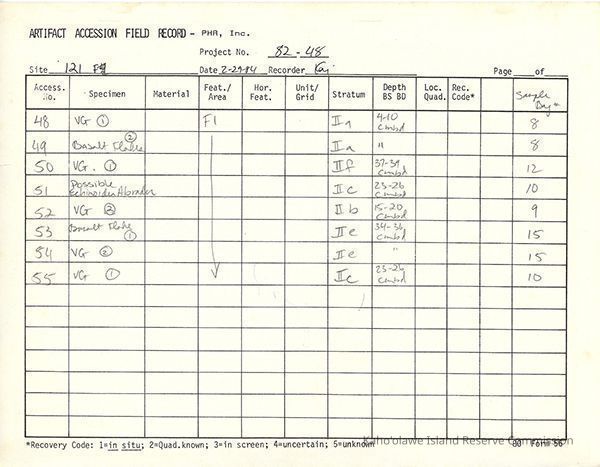 ARTIFACT ACCESSION FIELD RECORD - PHR, Inc.
Project No. 82-48
Site 121 Date 2-29-84 Recorder Page of
Access. No. Specimen Material Feat./ Area Hor. Feat. Unit/ Grid Stratum Depth BS BD Loc. Quad. Rec. Code* Sample Bag #
48 VG ① F1 IIa 4-10 cmbd 8
49 Basalt Flake ② IIa " 8
50 VG. ① IIf 37-39 cmbd 12
51 Possible Echinoides Abrader IIc 23-26 cmbd 10
52 VG ② IIb 15-20 cmbd 9
53 Basalt Flake ① IIe 34-36 cmbd 15
54 VG ② IIe " 15
55 VG ① IIc 23-26 cmbd 10
*Recovery Code: 1=in situ; 2=Quad.known; 3=in screen; 4=uncertain; 5=unknown 80 Form 56
Kaho'olawe Island Reserve Commission